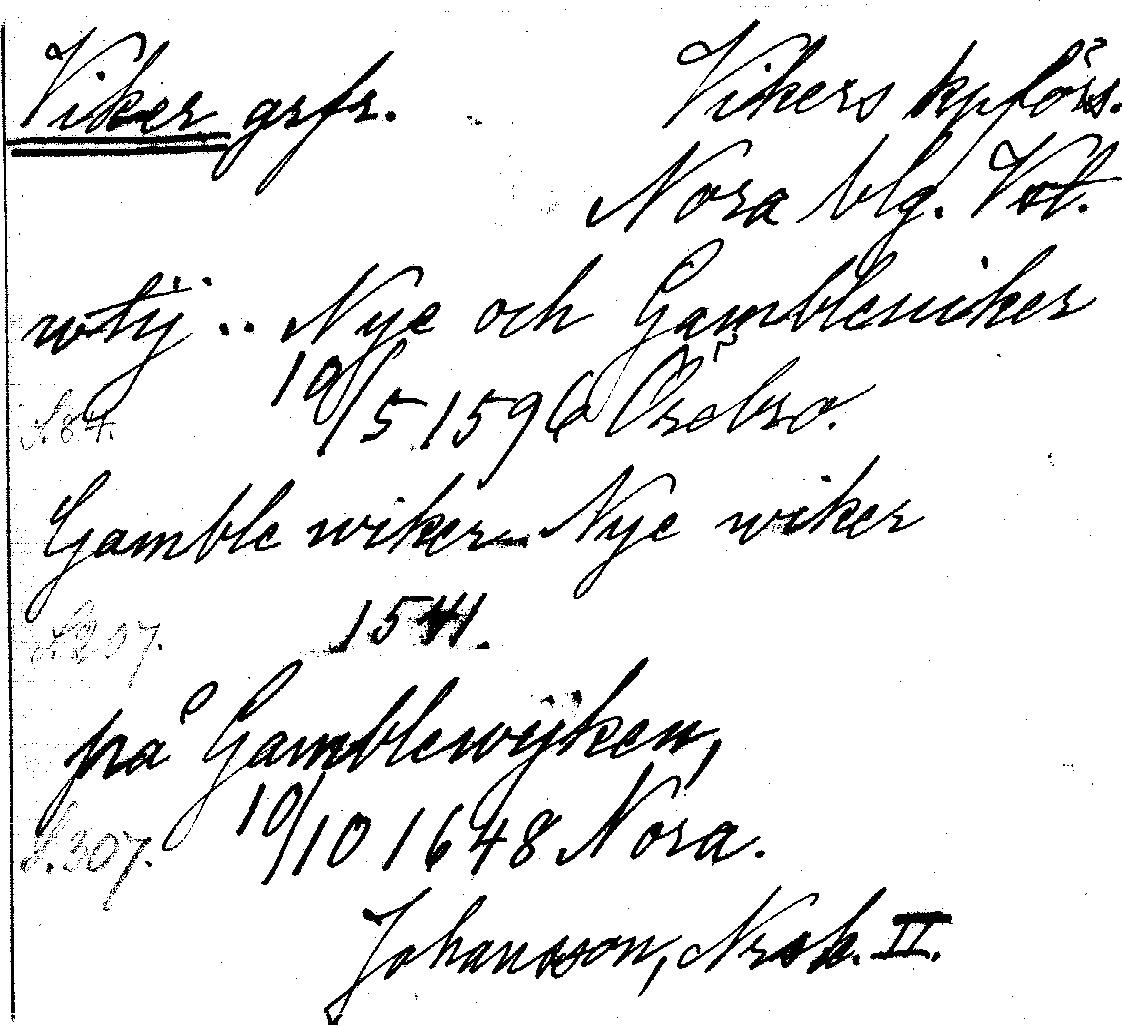 Viker grfr. Vikers kpförs.
Nora blg. Vstl.
wtij .. Nye och Gambleuiker
S.87. 10/5 1596 Örebro.
Gamble wiker Nye wiker
S.207. 1541.
på Gamblewijken,
S.307. 10/10 1648 Nora.
Johansson, Nrsk. II.